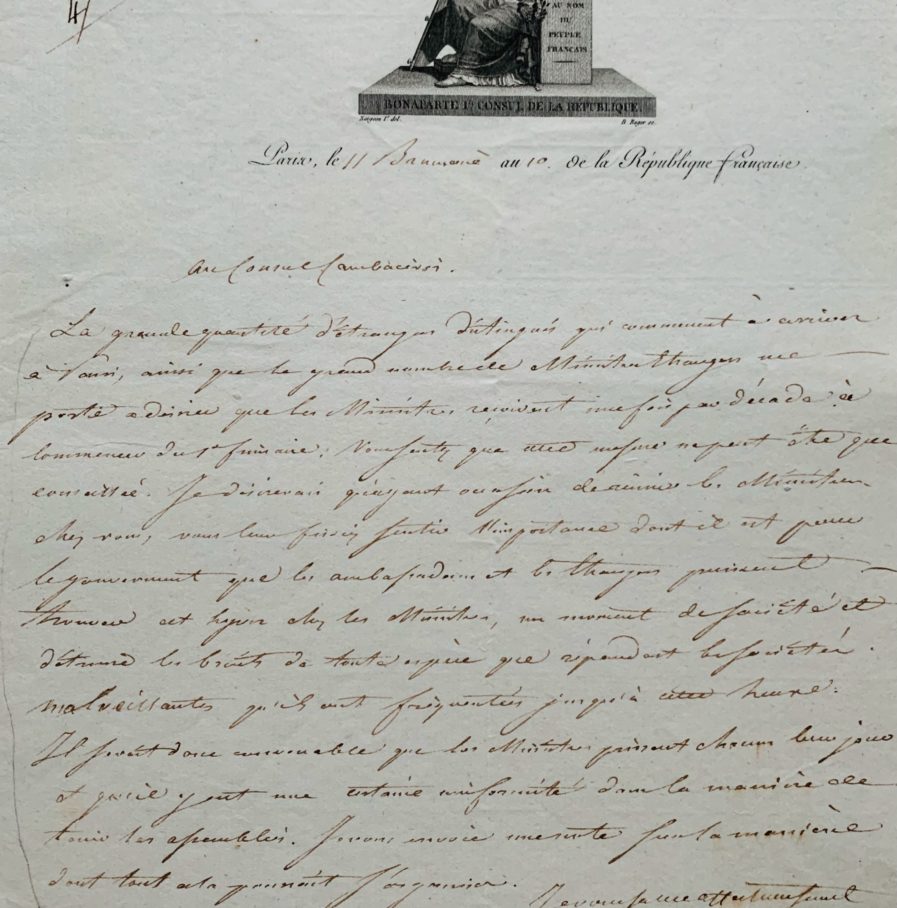 4
AU NOM
DU
PEUPLE
FRANÇAIS
BONAPARTE 1er CONSUL DE LA RÉPUBLIQUE.
Naigeon Jne del. B. Roger sc.
Paris, le 11 Brumaire an 10 de la République française.
Au Consul Cambacérès.
La grande quantité d'étrangers distingués qui commencent à arriver
à Paris, ainsi que le grand nombre de Ministres étrangers me
porte a désirer que les Ministres reçoivent une fois par décade à
commencer du 1er frimaire. Vous sentez que cette mesure ne peut être que
conseillée. Je désirerais qu'ayant occasion de réunir les Ministres
chez vous, vous leur fissiez sentir l'importance dont il est pour
le gouvernement que les ambassadeurs et les étrangers puissent
trouver cet hyver chez les Ministres, un moment de société et
détruire les bruits de toute espèce que répandent les sociétés
malveillantes qu'ils ont fréquentées jusqu'à cette heure.
Il serait donc convenable que les Ministres prissent chacun leur jour
et qu'il y eut une certaine uniformité dans la manière de
tenir les assemblées. Je vous envoie une note sur la manière
dont tout cela pourrait s'organiser.
Je vous salue affectueusement